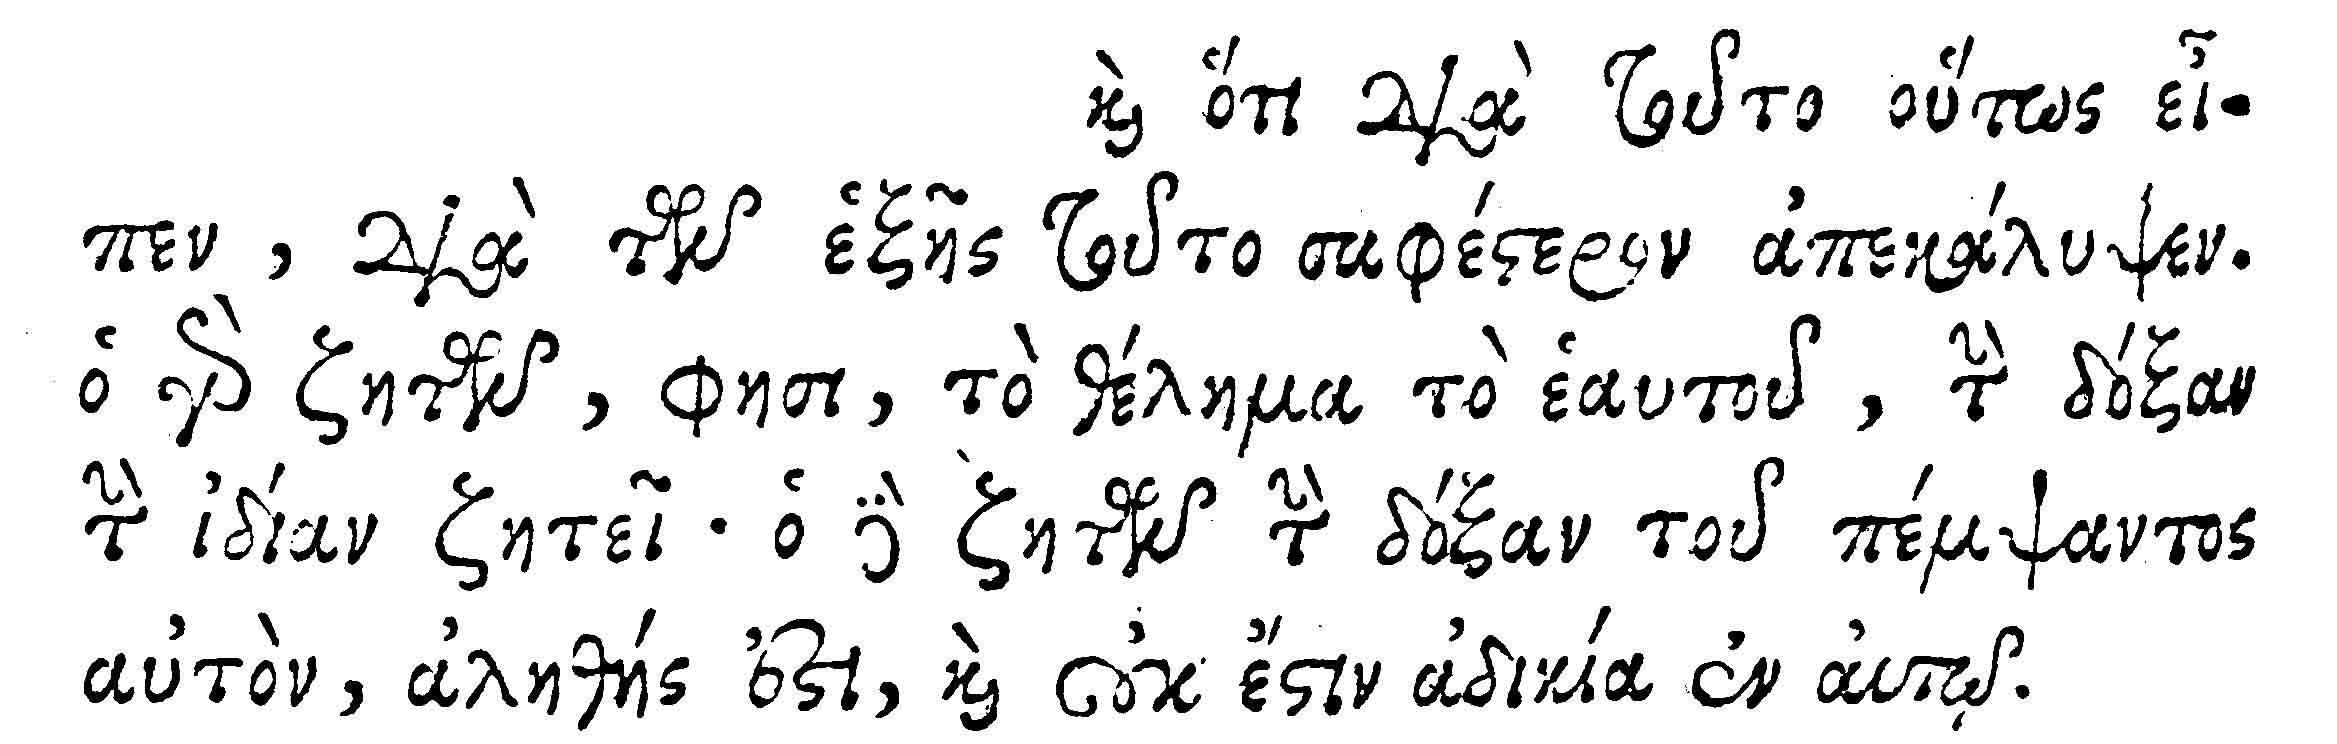 καὶ ὅτι διὰ τοῦτο οὕτως εἶ-
πεν, διὰ τῶν ἑξῆς τοῦτο σαφέστερον ἀπεκάλυψεν.
ὁ γὰρ ζητῶν, φησι, τὸ θέλημα τὸ ἑαυτοῦ, τὴν δόξαν
τὴν ἰδίαν ζητεῖ · ὁ δὲ ζητῶν τὴν δόξαν τοῦ πέμψαντος
αὐτὸν, ἀληθής ἐστι, καὶ οὐκ ἔστιν ἀδικία ἐν ἀυτῷ.